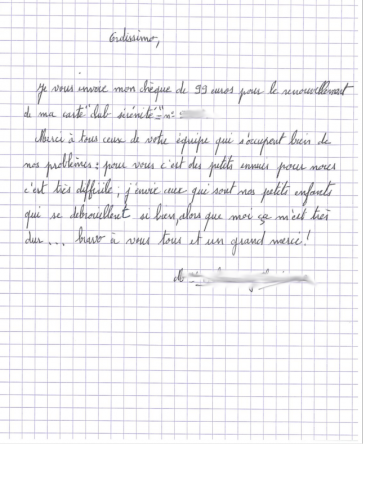 Ordissimo,
Je vous envoie mon chèque de 99 euros pour le renouvellement
de ma carte "club sérénité" n°
Merci à tous ceux de votre équipe qui s'occupent bien de
nos problèmes : pour vous c'est des petits ennuis pour nous
c'est très difficile ; j'envie ceux qui sont nos petits enfants
qui se debrouillent si bien, alors que moi ça m'est très
dur ... bravo à vous tous et un grand merci !
M